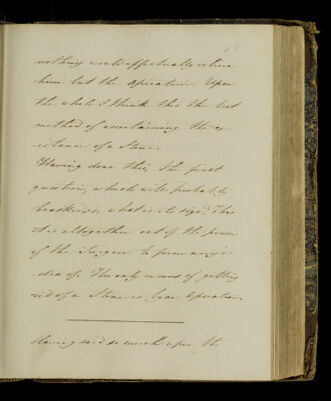 67
nothing would effectually relieve
him but the Operation. Upon
the whole I think this the best
method of ascertaining the ex-
istence of a Stone.
Having done this, the first
question, which will probably
be asked is, what is its size? This
it is altogether out of the power
of the Surgeon to form any i-
dea of. The only means of getting
rid of a Stone is by an Operation.
Having said so much upon the